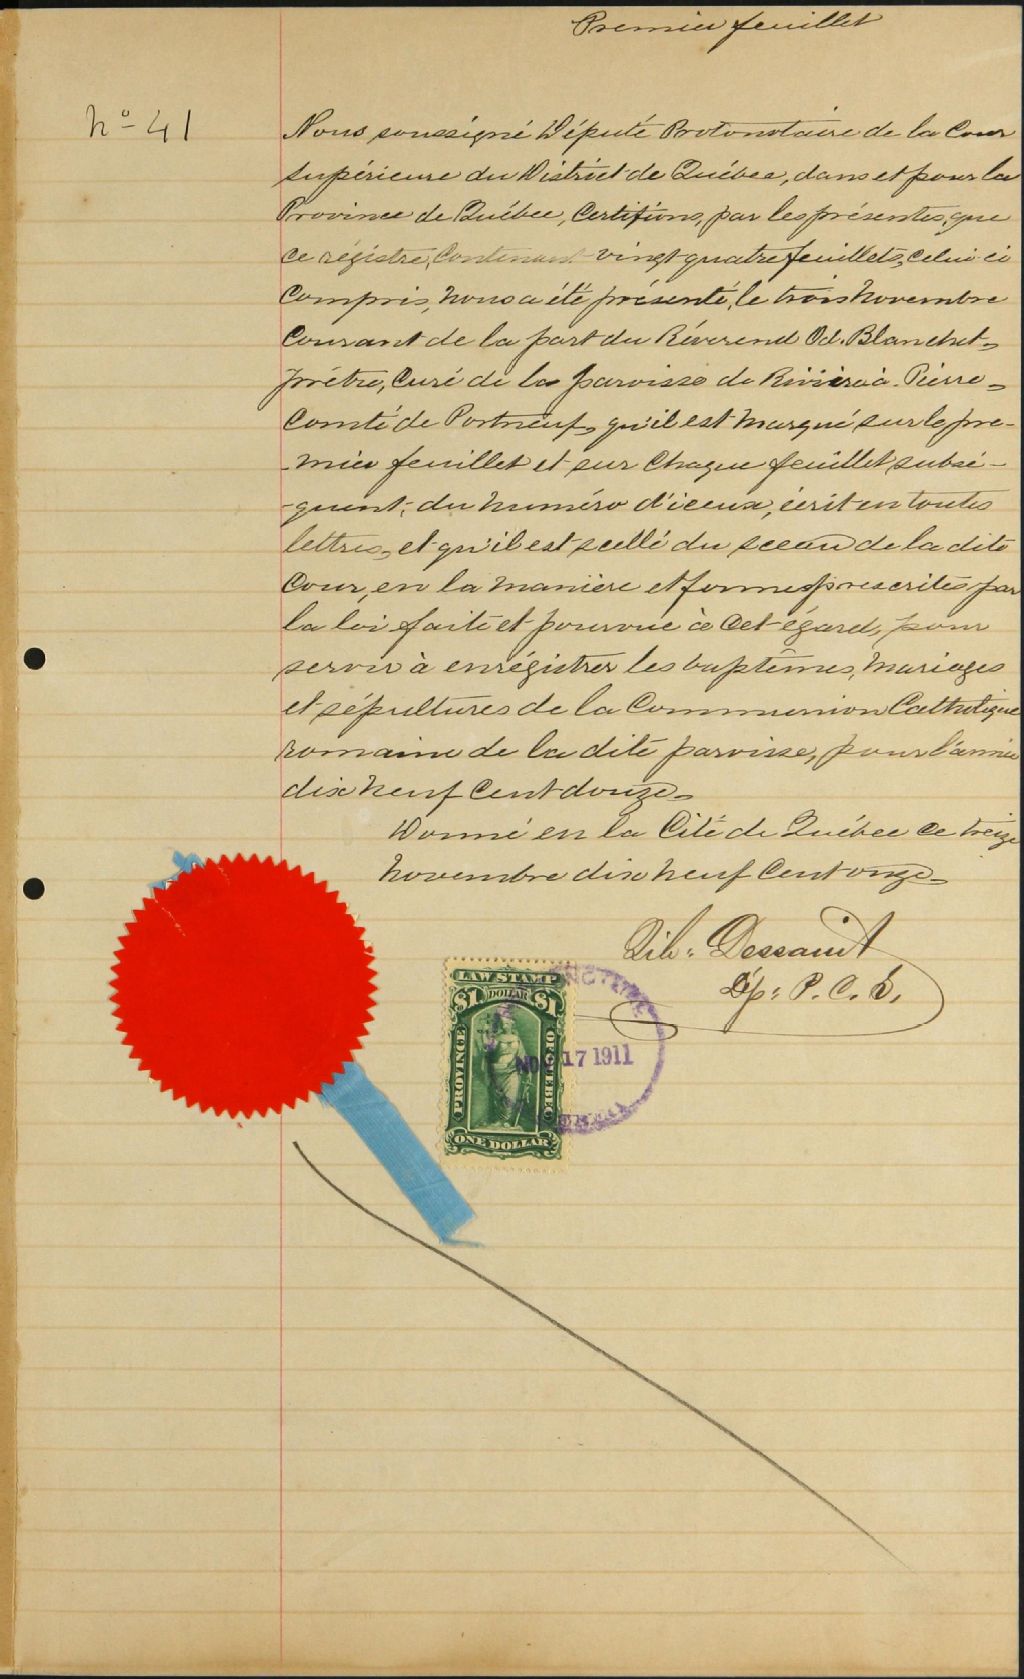 Premier feuillet
No 41
Nous soussigné Député Protonotaire de la Cour
supérieure du District de Québec, dans et pour la
Province de Québec, Certifions, par les présentes, que
ce régistre, Contenant vingt quatre feuillets, celui-ci
Compris, nous a été présenté, le trois Novembre
Courant de la part du Révérend Od. Blanchet,
prêtre, Curé de la paroisse de Rivière à Pierre,
Comté de Portneuf, qu'il est marqué sur le pre-
-mier feuillet et sur Chaque feuillet subsé-
-quent, du numéro d'iceux, écrit en toutes
lettres, et qu'il est scellé du sceau de la dite
Cour, en la manière et formes prescrites par
la loi faite et pourvue à cet égard, pour
servir à enrégistrer les baptêmes, mariages
et sépultures de la Communion Catholique
romaine de la dite paroisse, pour l'année
dix neuf Cent douze.
Donné en la Cité de Québec ce treize
Novembre dix neuf Cent onze.
Dessaint
Dép: P. C. S.
LAW STAMP
$1 DOLLAR $1
PROVINCE OF QUEBEC
NOV 17 1911
ONE DOLLAR